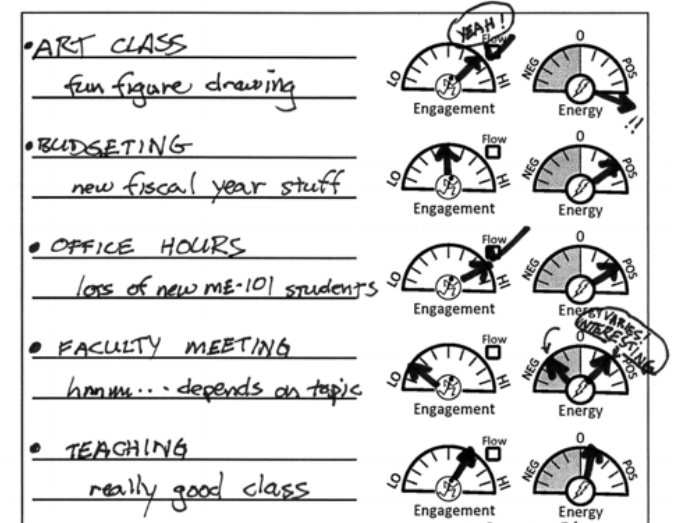 YEAH!
• ART CLASS
fun figure drawing
Flow
LO HI
Engagement
NEG 0 POS
Energy
!!
• BUDGETING
new fiscal year stuff
Flow
LO HI
Engagement
NEG 0 POS
Energy
• OFFICE HOURS
lots of new ME-101 students
Flow
LO HI
Engagement
NEG 0 POS
Energy
VARIES!
INTERESTING
• FACULTY MEETING
hmmm... depends on topic
Flow
LO HI
Engagement
NEG 0 POS
Energy
• TEACHING
really good class
Flow
LO HI
Engagement
NEG 0 POS
Energy